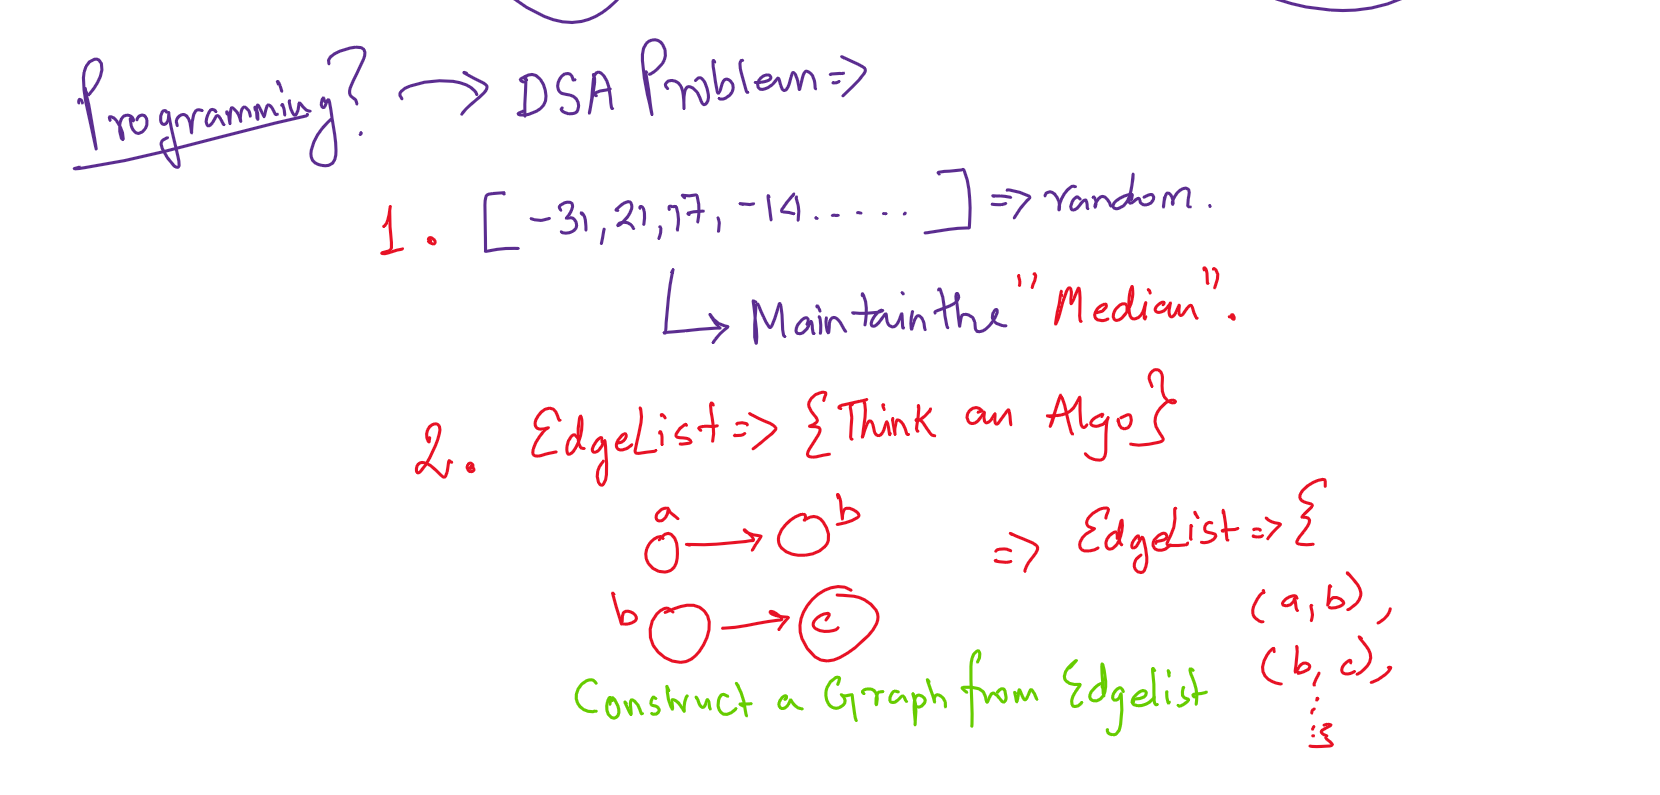 Programming? → DSA Problem =>
1. [-31, 21, 17, -14. . . . . . ] => random.
Maintain the "Median".
2. EdgeList => {Think an Algo}
a → b
=> EdgeList => {
b → c
(a, b),
(b, c),
Construct a Graph from Edgelist